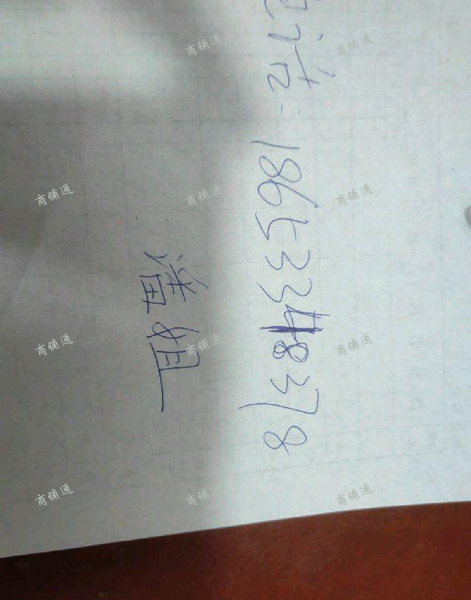 电话:18653348378
潘姐
商铺通
商铺通
商铺通
商铺通
商铺通
商铺通
商铺通
商铺通
商铺通
商铺通
商铺通